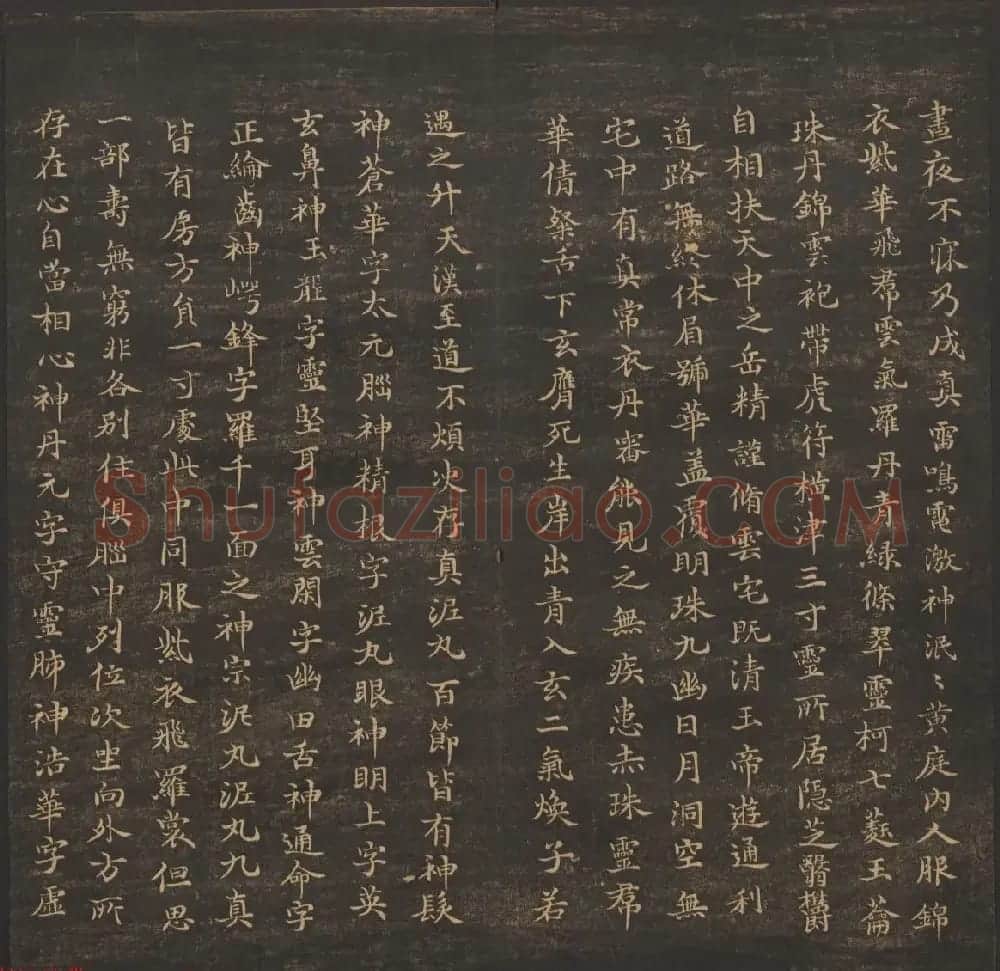 晝夜不寐乃成真雷鳴電激神泯〻黄庭内人服錦
衣紫華飛帬雲氣羅丹青綠條翠靈柯七蕤玉籥
珠丹錦雲袍帶虎符横津三寸靈所居隱芝翳鬱
自相扶天中之岳精謹脩雲宅既清玉帝遊通利
道路無終休眉號華盖覆明珠九幽日月洞空無
宅中有真常衣丹審能見之無疾患赤珠靈帬
華倩粲舌下玄膺死生岸出青入玄二氣煥子若
遇之升天漢至道不煩决存真泥丸百節皆有神髮
神蒼華字太元腦神精根字泥丸眼神明上字英
玄鼻神玉壟字靈堅耳神雲閑字幽田舌神通命字
正綸齒神崿鋒字羅千一面之神宗泥丸泥丸九真
皆有房方負一寸處此中同服紫衣飛羅裳但思
一部壽無窮非各別住俱腦中列位次坐向外方所
存在心自當相心神丹元字守靈肺神浩華字虛
Shufaziliao.COM